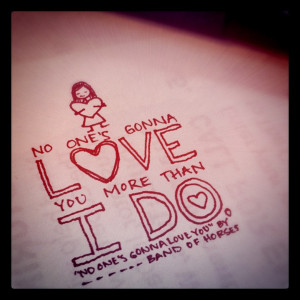 NO ONE'S GONNA
LOVE
YOU MORE THAN
I DO.
"NO ONE'S GONNA LOVE YOU" BY
BAND OF HORSES